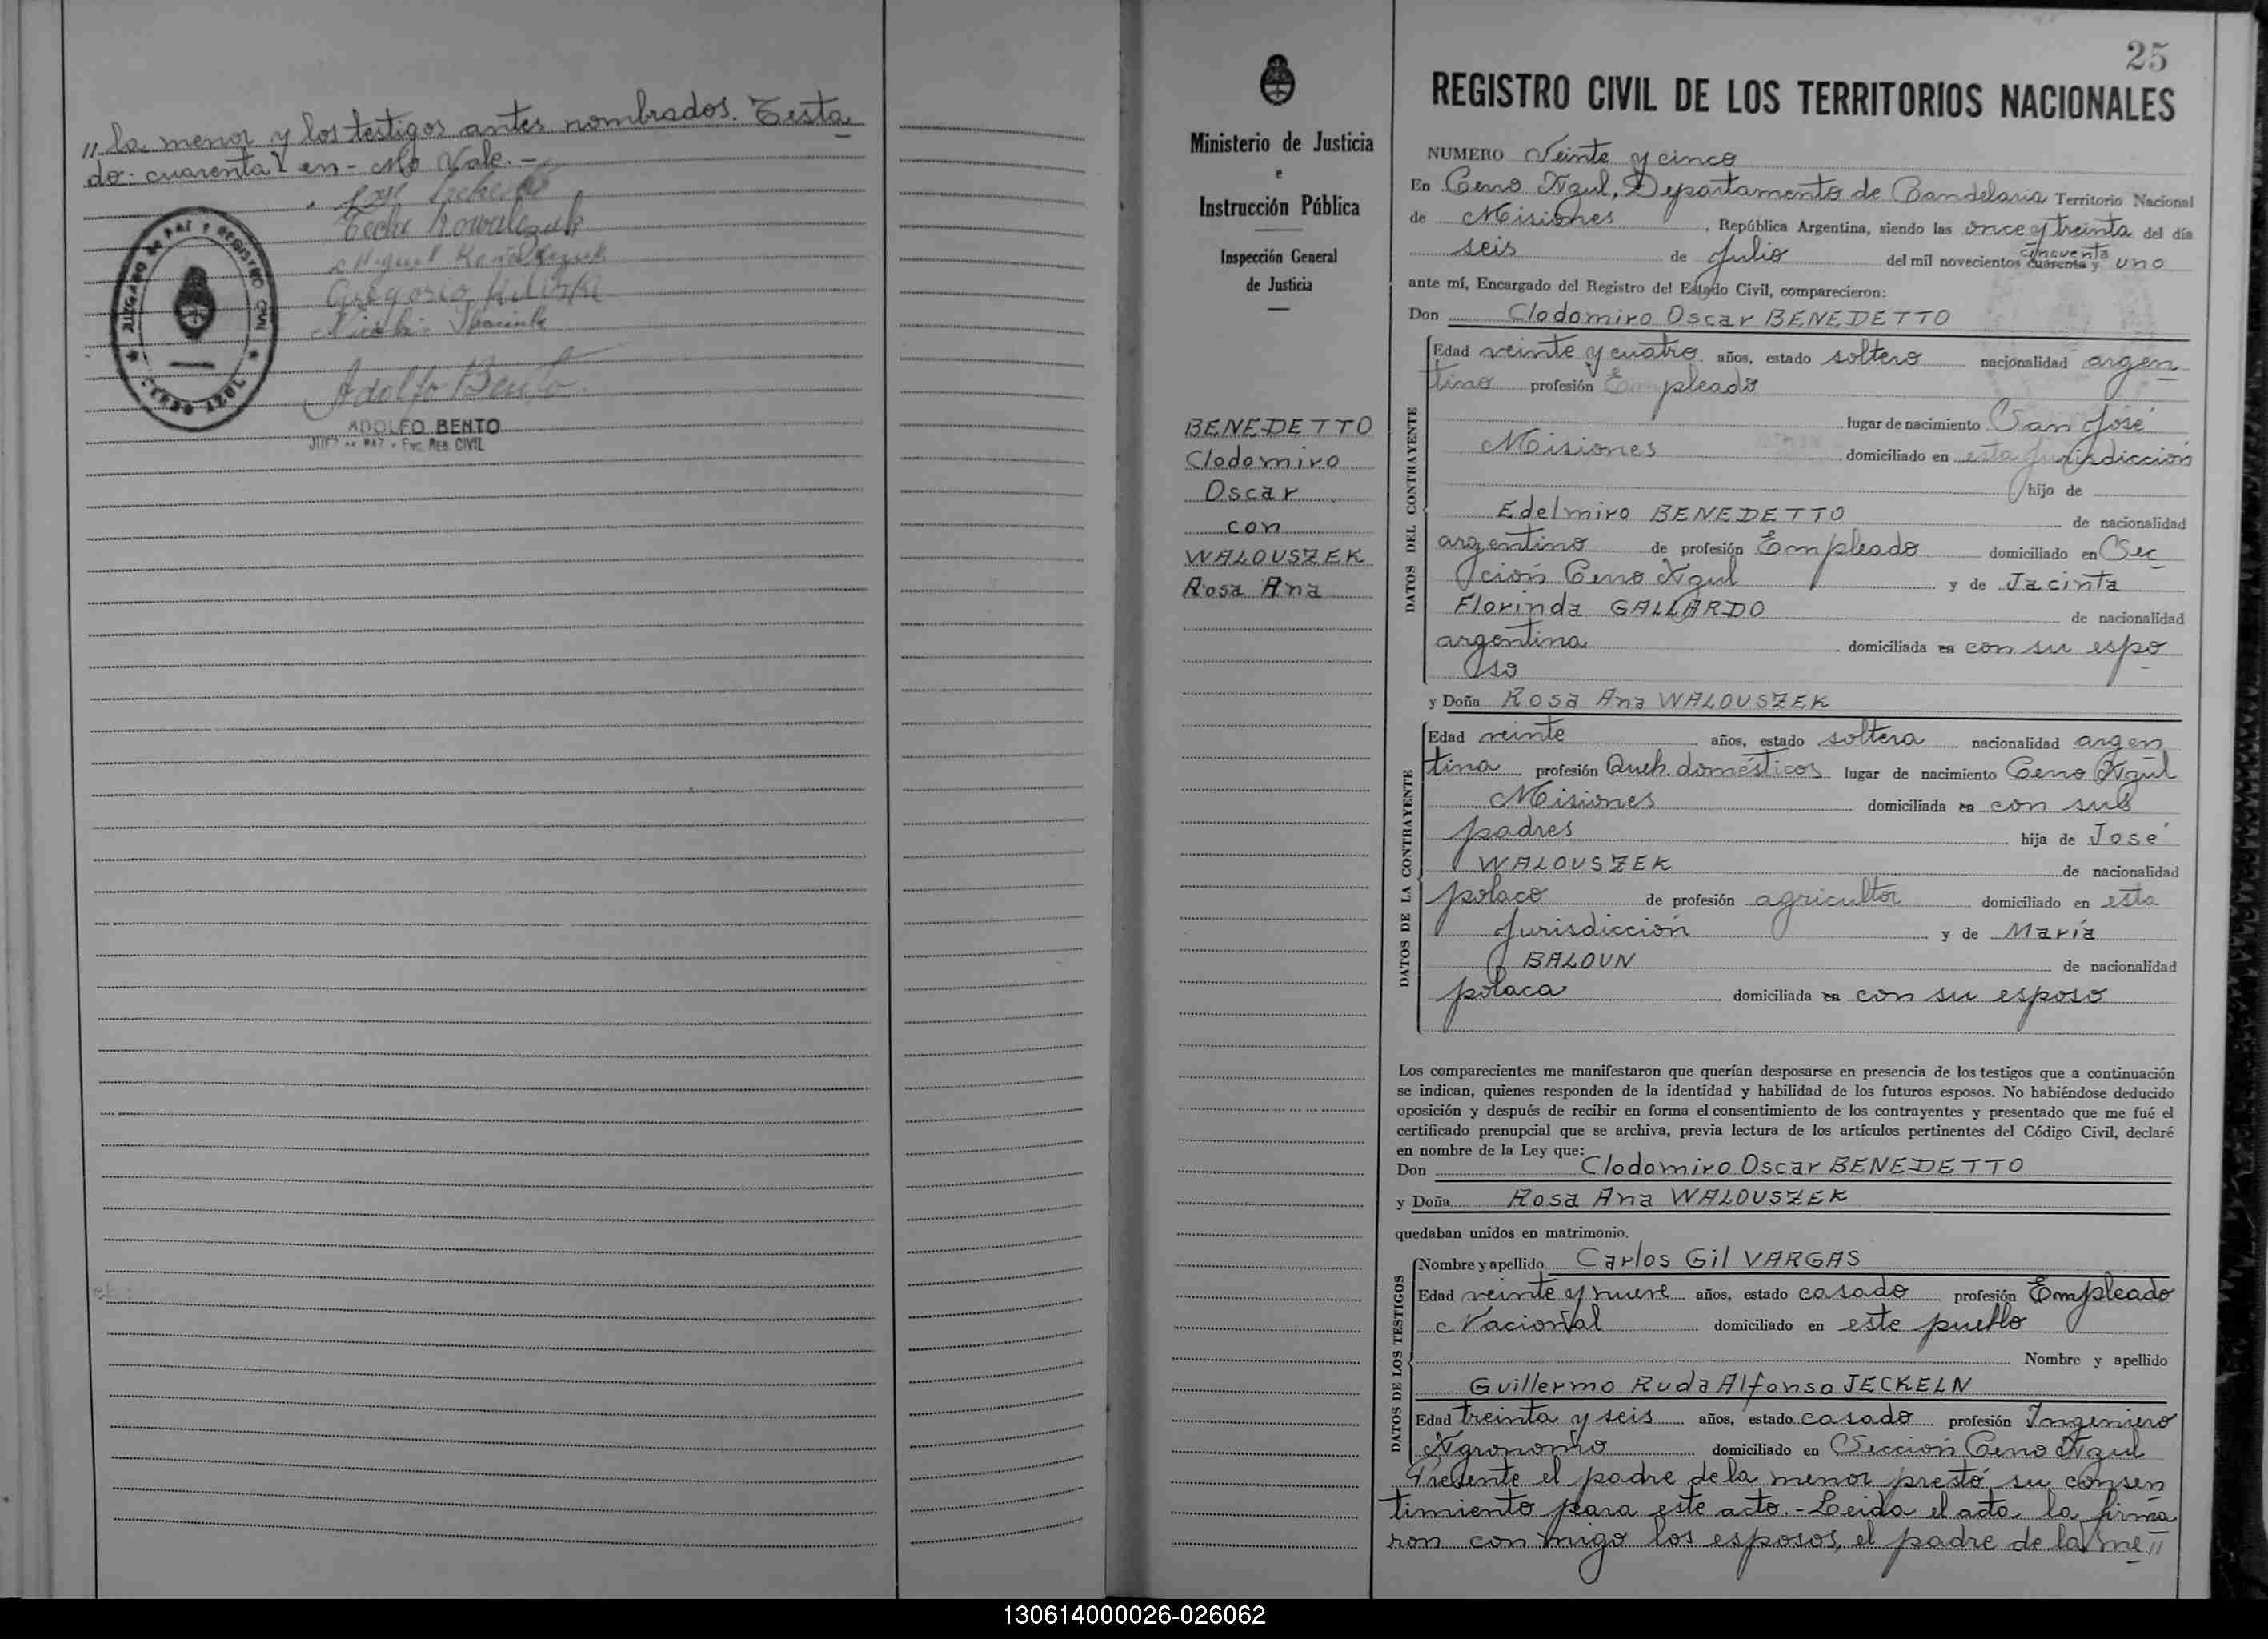 " la menor y los testigos antes nombrados. Testa
do: cuarenta y en - No Vale. -
Gregorio
JUZGADO DE PAZ Y REGISTRO CIVIL
CERRO AZUL
Adolfo Bento
ADOLFO BENTO
JUEZ DE PAZ y ENC. REG. CIVIL
25
Ministerio de Justicia
e
Instrucción Pública
Inspección General
de Justicia
BENEDETTO
Clodomiro
Oscar
con
WALOUSZEK
Rosa Ana
REGISTRO CIVIL DE LOS TERRITORIOS NACIONALES
NUMERO Veinte y cinco
En Cerro Azul, Departamento de Candelaria Territorio Nacional
de Misiones, República Argentina, siendo las once y treinta del día
seis de Julio del mil novecientos cuarenta y cincuenta uno
ante mí, Encargado del Registro del Estado Civil, comparecieron:
Don Clodomiro Oscar BENEDETTO
DATOS DEL CONTRAYENTE
Edad veinte y cuatro años, estado soltero nacionalidad argen
tino profesión Empleado
lugar de nacimiento San José
Misiones domiciliado en esta jurisdicción
hijo de
Edelmiro BENEDETTO de nacionalidad
argentino de profesión Empleado domiciliado en Sec
ción Cerro Azul y de Jacinta
Florinda GALLARDO de nacionalidad
argentina domiciliada en con su espo
so
y Doña Rosa Ana WALOUSZEK
DATOS DE LA CONTRAYENTE
Edad veinte años, estado soltera nacionalidad argen
tina profesión Queh. domésticos lugar de nacimiento Cerro Azul
Misiones domiciliada en con sus
padres hija de José
WALOUSZEK de nacionalidad
polaco de profesión agricultor domiciliado en esta
jurisdicción y de María
BALOUN de nacionalidad
polaca domiciliada en con su esposo
Los comparecientes me manifestaron que querían desposarse en presencia de los testigos que a continuación
se indican, quienes responden de la identidad y habilidad de los futuros esposos. No habiéndose deducido
oposición y después de recibir en forma el consentimiento de los contrayentes y presentado que me fué el
certificado prenupcial que se archiva, previa lectura de los artículos pertinentes del Código Civil, declaré
en nombre de la Ley que:
Don Clodomiro Oscar BENEDETTO
y Doña Rosa Ana WALOUSZEK
quedaban unidos en matrimonio.
DATOS DE LOS TESTIGOS
Nombre y apellido Carlos Gil VARGAS
Edad veinte y nueve años, estado casado profesión Empleado
Nacional domiciliado en este pueblo
Nombre y apellido
Guillermo Ruda Alfonso JECKELN
Edad treinta y seis años, estado casado profesión Ingeniero
Agronomo domiciliado en Sección Cerro Azul
Presente el padre de la menor prestó su consen
timiento para este acto. - Leida el acta la firma
ron con migo los esposos, el padre de la me "
130614000026-026062